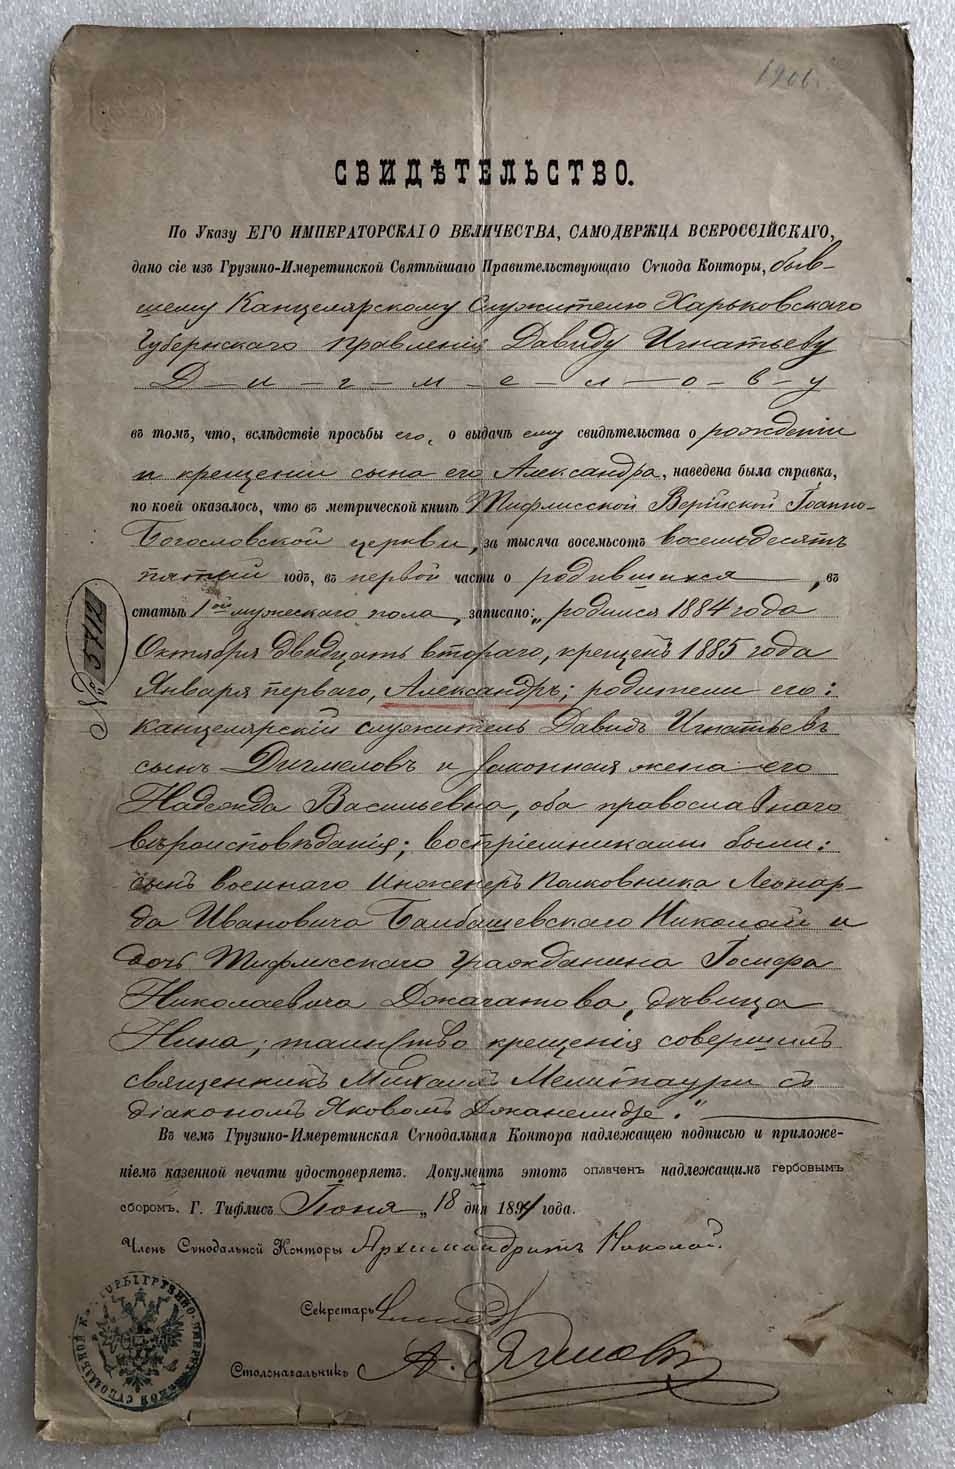 1906.
СВИДѢТЕЛЬСТВО.
По Указу ЕГО ИМПЕРАТОРСКАГО ВЕЛИЧЕСТВА, САМОДЕРЖЦА ВСЕРОССІЙСКАГО,
дано сіе изъ Грузино-Имеретинской Святѣйшаго Правительствующаго Сѵнода Конторы, быв-
шему Канцелярскому Служителю Харьковскаго
Губернскаго Правленія Давиду Игнатьеву
Д-и-г-м-е-л-о-в-у
въ томъ, что, вслѣдствіе просьбы его, о выдачѣ ему свидѣтельства о рожденіи
и крещеніи сына его Александра, наведена была справка,
по коей оказалось, что въ метрической книгѣ Тифлисской Верійской Іоанно-
Богословской церкви, за тысяча восемьсотъ восемьдесятъ
пятый годъ, въ первой части о родившихся, въ
статьѣ 1ой мужескаго пола, записано: „родился 1884 года
Октября двадцать втораго, крещенъ 1885 года
Января перваго, Александръ; родители его:
канцелярскій служитель Давидъ Игнатьевъ
сынъ Дигмеловъ и законная жена его
Надежда Васильевна, оба православнаго
вѣроисповѣданія; воспріемниками были:
сынъ военнаго Инженеръ Полковника Леонар-
да Ивановича Бамбашевскаго Николай и
дочь Тифлисскаго гражданина Іосифа
Николаевича Джагатова, дѣвица
Нина; таинство крещенія совершилъ
священникъ Михаилъ Мелитаури съ
діакономъ Яковомъ Джанелидзе."
Въ чемъ Грузино-Имеретинская Сѵнодальная Контора надлежащею подписью и приложе-
ніемъ казенной печати удостовѣряетъ. Документъ этотъ оплаченъ надлежащимъ гербовымъ
сборомъ. Г. Тифлисъ Іюня „18 дня 1894 года.
Членъ Сѵнодальной Конторы Архимандритъ Николай.
Секретарь
Столоначальникъ А.
№ 5712